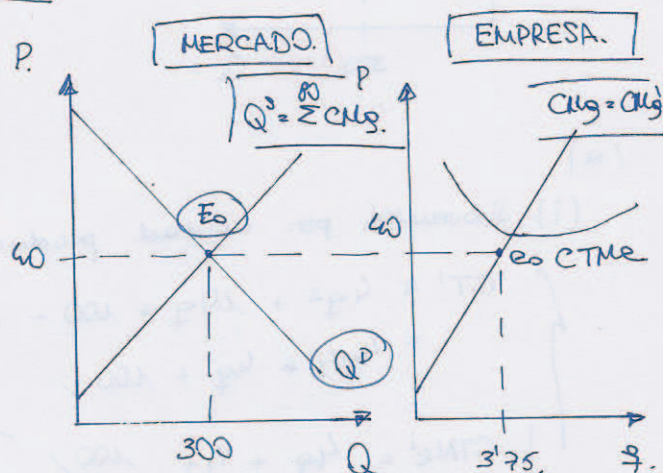 MERCADO.
EMPRESA.
P.
P
Q^S = Σ^80 CMg.
CMg = CMg'
E0
40
40
e0 CTMe
Q^D
300
Q
3'75.
q.